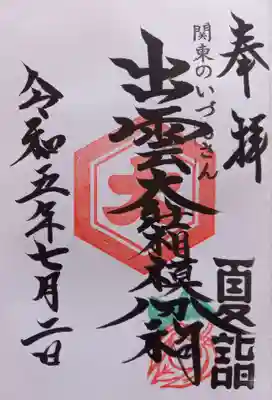 奉拝
夏詣
関東のいづもさん
出雲大社相模分祠
令和五年七月二日